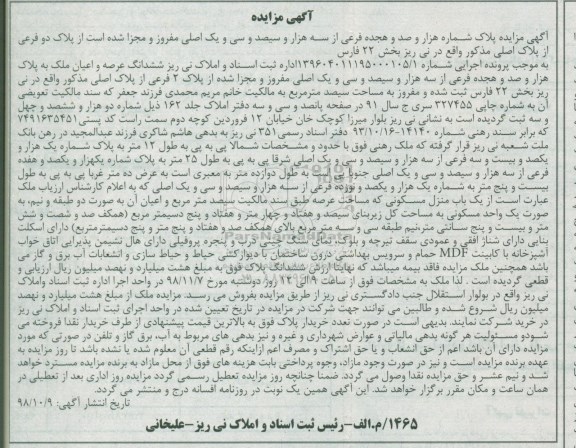 آگهی مزایده
آگهی مزایده پلاک شماره هزار و صد و هجده فرعی از سه هزار و سیصد و سی و یک اصلی مفروز و مجزا شده است از پلاک دو فرعی
از پلاک اصلی مذکور واقع در نی ریز بخش ۲۲ فارس
به موجب پرونده اجرایی شماره ۱۳۹۶۰۴۰۱۱۱۹۵۰۰۰۱۰۵/۱ اداره ثبت اسناد و املاک نی ریز ششدانگ عرصه و اعیان ملک به پلاک
هزار و صد و هجده فرعی از سه هزار و سیصد و سی و یک اصلی مفروز و مجزا شده از پلاک ۲ فرعی از پلاک اصلی مذکور واقع در نی
ریز بخش ۲۲ فارس ثبت شده و مفروز به مساحت صد مترمربع به مالکیت خانم مریم محمدی فرزند جعفر که سند مالکیت تعویضی
آن به شماره چاپی ۳۲۷۴۵۵ سری ج سال ۹۱ در صفحه پانصد و سی و سه دفتر املاک جلد ۱۶۲ ذیل شماره دو هزار و ششصد و چهل
و سه ثبت گردیده است به نشانی نی ریز بلوار میرزا کوچک خان خیابان ۱۲ فروردین کوچه دوم سمت راست کد پستی ۷۴۹۱۶۳۵۴۵۱
که برابر سند رهنی شماره ۱۴۱۴۰-۹۳/۱۰/۱۶ دفتر اسناد رسمی ۳۵۱ نی ریز به بدهی هاشم شاکری فرزند عبدالمجید در رهن بانک
ملت شعبه نی ریز قرار گرفته که ملک رهنی فوق با حدود و مشخصات شمالا پی به پی به طول ۱۲ متر به پلاک شماره یک هزار و
یکصد و بیست و سه فرعی از سه هزار و سیصد و سی و یک اصلی شرقا پی به پی به طول ۲۵ متر به پلاک شماره یکهزار و یکصد و هفده
فرعی از سه هزار و سیصد و سی و یک اصلی جنوبا به طول دوازده متر به معبری است به عرض ده متر غربا پی به پی به طول
بیست و پنج متر به شماره یک هزار و یکصد و نوزده فرعی از سه هزار و سیصد و سی و یک اصلی که به اعلام کارشناس ارزیاب ملک
عبارت است از یک باب منزل مسکونی که مساحت عرصه طبق سند مالکیت سیصد متر مربع و اعیان آن به صورت دو طبقه و نیم، به
صورت یک واحد مسکونی به مساحت کل زیربنای سیصد و هفتاد و چهار متر و هفتاد و پنج دسیمتر مربع (همکف صد و شصت و شش
متر و بیست و پنج سانتی متر، نیم طبقه سی و سه متر مربع بالای همکف صد و هفتاد و پنج متر و پنج دسیمترمربع) دارای اسکلت
بنایی دارای شناژ افقی و عمودی سقف تیرچه و بلوک، نمای سنگ چینی درب و پنجره پروفیلی دارای هال نشیمن پذیرایی اتاق خواب
آشپزخانه با کابینت MDF حمام و سرویس بهداشتی درون ساختمان با دیوارکشی حیاط و حیاط سازی و انشعابات آب برق و گاز می
باشد همچنین ملک مزایده فاقد بیمه میباشد که نهایتا ارزش ششدانگ پلاک فوق به مبلغ هشت میلیارد و نهصد میلیون ریال ارزیابی و
قطعی گردیده است. لذا ملک به مشخصات فوق از ساعت ۹ الی ۱۲ روز دوشنبه مورخ ۹۸/۱۱/۷ در واحد اجرا اداره ثبت اسناد واملاک
نی ریز واقع در بولوار استقلال جنب دادگستری نی ریز از طریق مزایده بفروش می رسد. مزایده ملک از مبلغ هشت میلیارد و نهصد
میلیون ریال شروع شده و طالبین می توانند جهت شرکت در مزایده در تاریخ تعیین شده در واحد اجرای ثبت اسناد و املاک نی ریز
در خرید شرکت نمایند. بدیهی است در صورت تعدد خریدار پلاک فوق به بالاترین قیمت پیشنهادی از طرف خریدار نقدا فروخته می
شود و مسئولیت هر گونه بدهی مالیاتی و عوارض شهرداری و غیره و نیز بدهی های مربوط به آب، برق گاز و تلفن در صورتی که مورد
مزایده دارای آن باشد اعم از حق انشعاب و یا حق اشتراک و مصرف اعم ازاینکه رقم قطعی آن معلوم شده یا نشده باشد تا روز مزایده به
عهده برنده مزایده است و نیز در صورت وجود مازاد، وجوه پرداختی بابت هزینه های فوق از محل مازاد به برنده مزایده مسترد خواهد
شد و نیم عشر و حق مزایده نقدا وصول می گردد. ضمنا چنانچه روز مزایده تعطیل رسمی گردد مزایده روز اداری بعد از تعطیلی در
همان ساعت و مکان مقرر برگزار خواهد شد. این آگهی همین یک نوبت در روزنامه افسانه درج و منتشر می گردد.
تاریخ انتشار آگهی: ۹۸/۱۰/۹
۱۴۶۵/م.الف-رئیس ثبت اسناد و املاک نی ریز-علیخانی